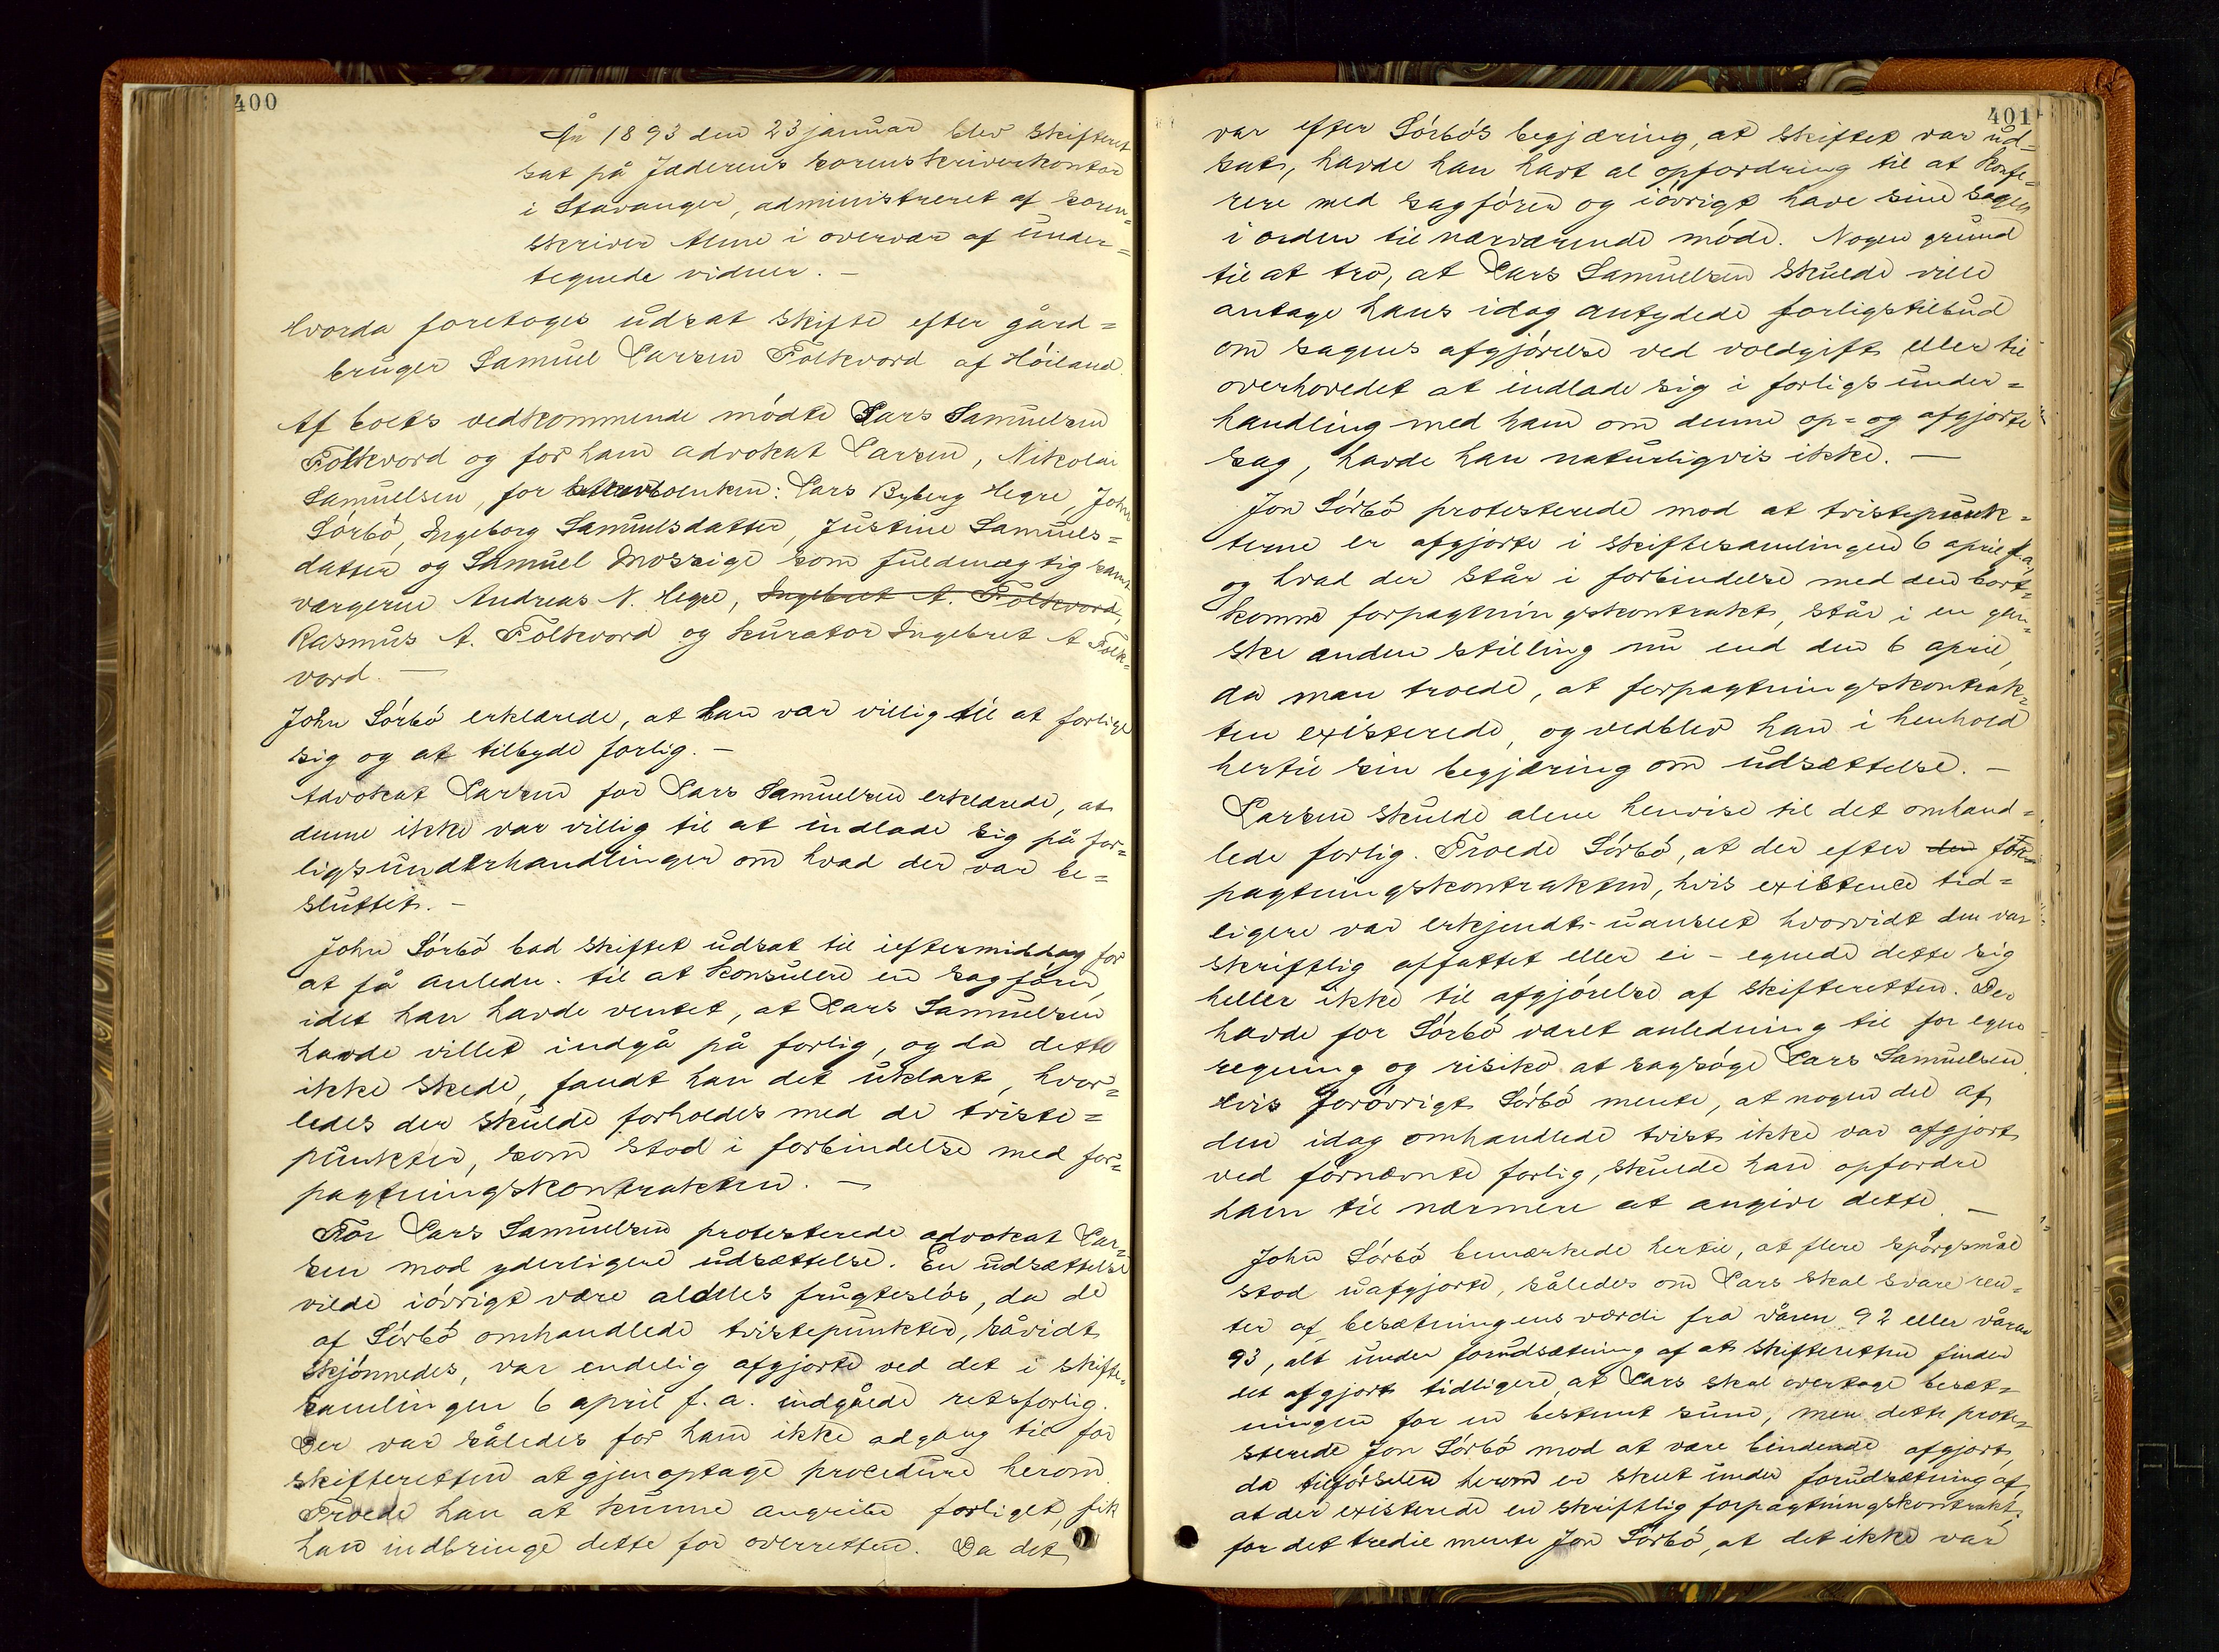 400
År 1893 den 23 januar blev skifteret
sat på Jæderens sorenskriverkontor
i Stavanger, administreret af soren=
skriver Alme i overvær af under=
tegnede vidner. -
Hvorda foretoges udsat skifte efter gård=
bruger Samuel Larsen Folkvord af Höiland.
Af boets vedkommende mödte Lars Samuelsen
Folkvord og for ham advokat Larsen, Nikolai
Samuelsen, for enken: Lars Byberg Hegre, John
Sörbö, Ingeborg Samuelsdatter, Justine Samuels=
datter og Samuel Mossige som fuldmægtig samt
værgerne Andreas N. Hegre, Ingebret A. Folkvord,
Rasmus A. Folkvord og kurator Ingebret A Folk=
vord. -
John Sörbö erklærede, at han var villig til at forlige
sig og at tilbyde forlig. -
Advokat Larsen for Lars Samuelsen erklærede, at
denne ikke var villig til at indlade sig på for=
ligsunderhandlinger om hvad der var be=
sluttet. -
John Sörbö bad skiftet udsat til ieftermiddag for
at få anledn. til at konsulere en sagförer,
idet han havde ventet, at Lars Samuelsen
havde villet indgå på forlig, og da dette
ikke skede, fandt han det uklart, hvor=
ledes der skulde forholdes med de triste=
punkter, som stod i forbindelse med for=
pagtningskontrakten. -
For Lars Samuelsen protesterede advokat Lar=
sen mod yderligere udsættelse. En udsættelse
vilde iövrigt være aldeles frugteslös, da de
af Sörbö omhandlede tvistepunkter, såvidt
skjönnedes, var endelig afgjorte ved det i skifte=
samlingen 6 april f. a. indgåede retsforlig.
Der var således for ham ikke adgang til for
skifteretten at gjenoptage procedure herom.
Troede han at kunne angribe forliget, fik
han indbringe dette for overretten. Da det
401
var efter Sörbös begjæring, at skiftet var ud=
sat, havde han havt al opfordring til at konfe=
rere med sagförer og iövrigt have sine sager
i orden til nærværende möde. Nogen grund
til at tro, at Lars Samuelsen skulde ville
antage hans idag antydede forligstilbud
om sagens afgjörelse ved voldgift eller til
overhovedet at indlade sig i forligsunder=
handling med ham om denne op= og afgjorte
sag, havde han naturligvis ikke. -
Jon Sörbö protesterede mod at tvistepunk=
terne er afgjorte i skiftesamlingen 6 april f.a,
og hvad der står i forbindelse med den bort=
komne forpagtningskontrakt, står i en gan=
ske anden stilling nu end den 6 april,
da man troede, at forpagtningskontrak=
ten existerede, og vedblev han i henhold
hertil sin begjæring om udsættelse. -
Larsen skulde alene henvise til det omhand=
lede forlig. Troede Sörbö, at der efter den for=
pagtningskontrakten, hvis existence tid=
ligere var erkjendt - uanseet hvorvidt den var
skriftlig affattet eller ei - egnede dette sig
heller ikke til afgjörelse af skifteretten. Der
havde for Sörbö været anledning til for egen
regning og risiko at sagsöge Lars Samuelsen.
Hvis forövrigt Sörbö mente, at nogen del af
den idag omhandlede tvist ikke var afgjort
ved fornævnte forlig, skulde han opfordre
ham til nærmere at angive dette. -
John Sörbö bemærkede hertil, at flere spörgsmål
stod uafgjorte, således om Lars skal svare ren=
ter af besætningens værdi fra våren 92 eller våren
93, alt under forudsætning af at skifteretten finder
det afgjort tidligere, at Lars skal overtage besæt=
ningen for en bestemt sum, men dette prote=
sterede Jon Sörbö mod at være bindende afgjort,
da tilförselen herom er skeet under forudsætning af,
at der existerede en skriftlig forpagtningskontrakt,
for det tredie mente Jon Sörbö, at det ikke var